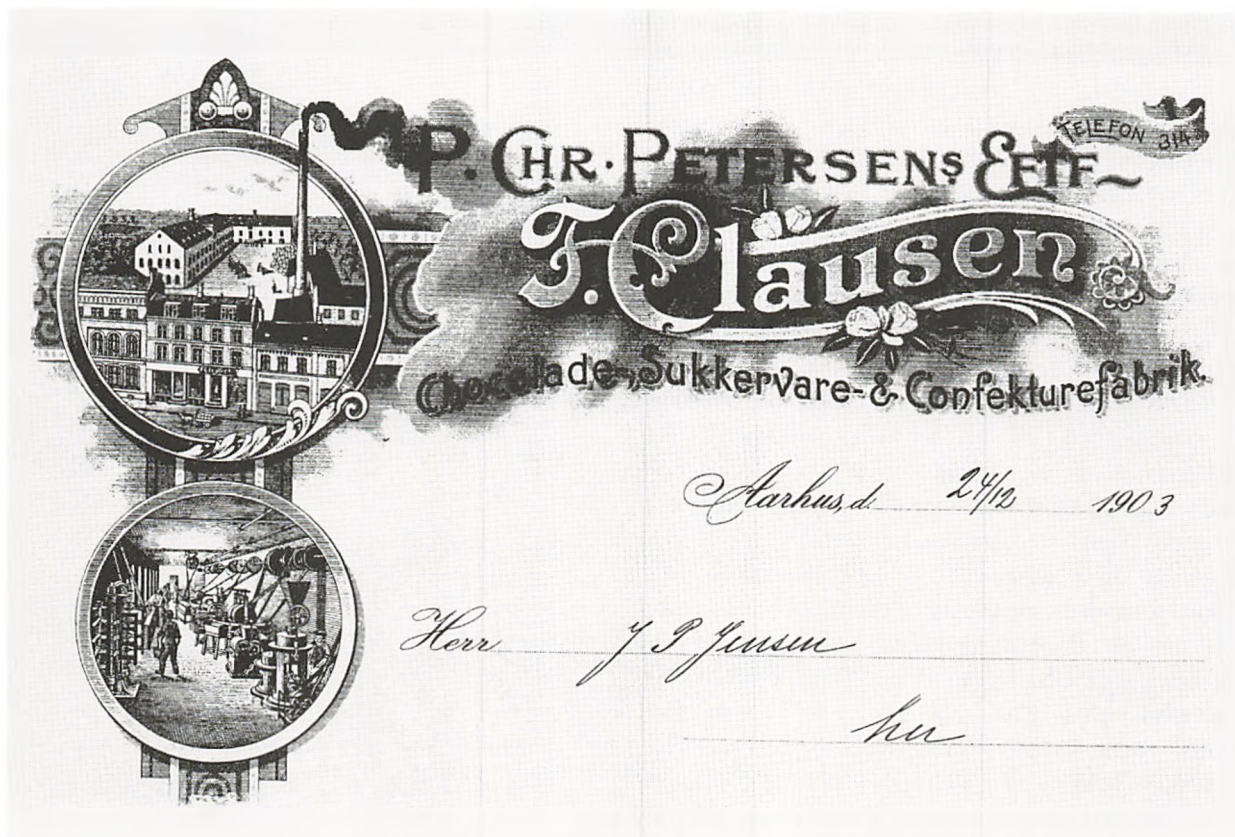 P. CHR. PETERSENS EFTF
TELEFON 314
F. Clausen
Chocolade-, Sukkervare- & Confekturefabrik.
Aarhus, d. 24/12 1903
Herr J P Jensen
her